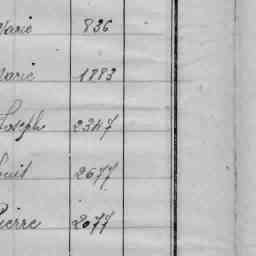 Marie 836
Marie 1883
Joseph 2347
Louis 2677
Pierre 2077